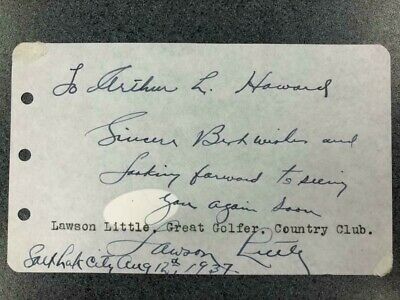 To Arthur L. Howard
Sincere Best wishes and
looking forward to seeing
you again soon
Lawson Little, Great Golfer, Country Club.
Lawson Little
Salt Lak City Aug 12th, 1937.